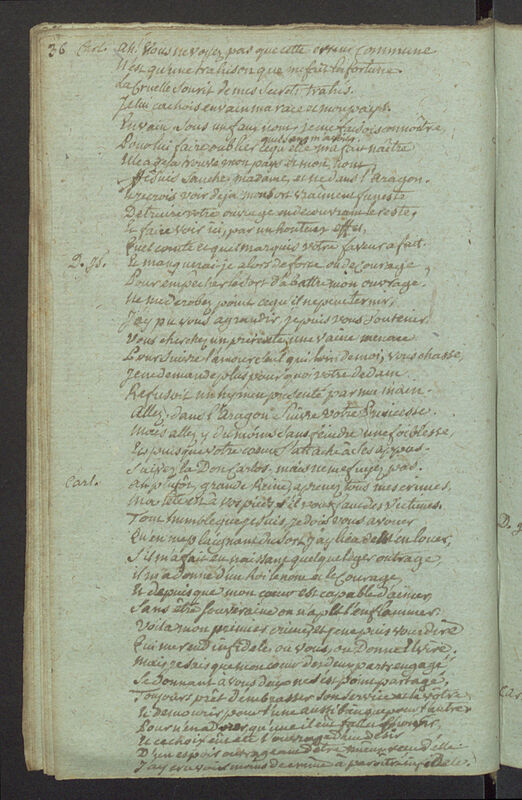 36 Carl. Ah! Vous ne voyez pas que cette erreur commune
N'est qu'une trahison que me fait la fortune.
La Cruelle sourit de mes secrets trahis.
Je lui cachois en vain ma race et mon pays.
En vain sous un faux nom je me faisois connoître,
Pour lui faire oublier ce qu'elle m'a fait naître
Elle a déja trouvé mon pays et mon nom
Je suis Sanche, madame, et né dans l'Aragon.
Je crois voir déja mon sort vraiment funeste
Détruire votre ouvrage en découvrant le reste,
Et faire voir ici par un honteux effet,
Quel comte et quel marquis votre faveur a fait.
D. Is. Et manquerai-je alors de force ou de courage,
Pour empecher le sort d'abattre mon ouvrage.
Ne me derobez point ce qu'il ne peut ternir.
J'ay pu vous agrandir, je puis vous soutenir.
Vous cherchez un prétexte, une vaine menace
Pour suivre l'amour seul qui loin de moi vous chasse,
Je ne demande plus pourquoi votre dédain
Refusoit un hymen présenté par ma main.
Allez dans l'Aragon suivre votre Princesse.
Mais allez y du moins sans feindre une foiblesse,
Et puisque votre coeur s'attache à ses appas
Suivez la Don Carlos, mais ne me fuyez pas.
Carl. Ah plutôt, grande Reine, aprenez tous mes crimes,
Ma tête est à vos pieds s'il vous faut des victimes.
Tout humble que je suis, je dois vous avouer
Qu'en me plaignant du sort j'ay lieu de m'en louer,
S'il m'a fait en naissant quelque léger outrage,
Il m'a donné d'un Roi le nom et le courage,
Et depuis que mon coeur est capable d'aimer,
Sans être souveraine on n'a pu l'enflammer.
Voila mon premier crime, et je ne puis vous dire
Qui me rend infidele, ou vous, ou Donne Elvire.
Mais je sais que mon coeur des deux parts engagé,
Se donnant à vous deux ne s'est point partagé,
Toujours prêt d'embrasser son service et le votre,
Et de mourir pour l'une aussi bien que pour l'autre
Pour n'en adorer qu'une il eut fallu choisir,
Et ce choix eut été l'ouvrage d'un desir